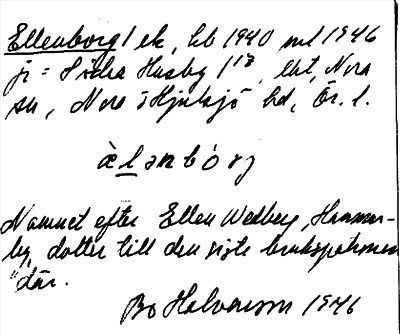 Ellenborg 1 ek, kb 1940 ml 1946
jr = Södra Husby 1¹⁸, lht, Nora
sn, Nora o Hjulsjö hd, Ör. l.
ὰlənbórj
Namnet efter Ellen Wedberg, Hammar-
by, dotter till den siste brukspatronen
där.
Bo Halvarson 1946